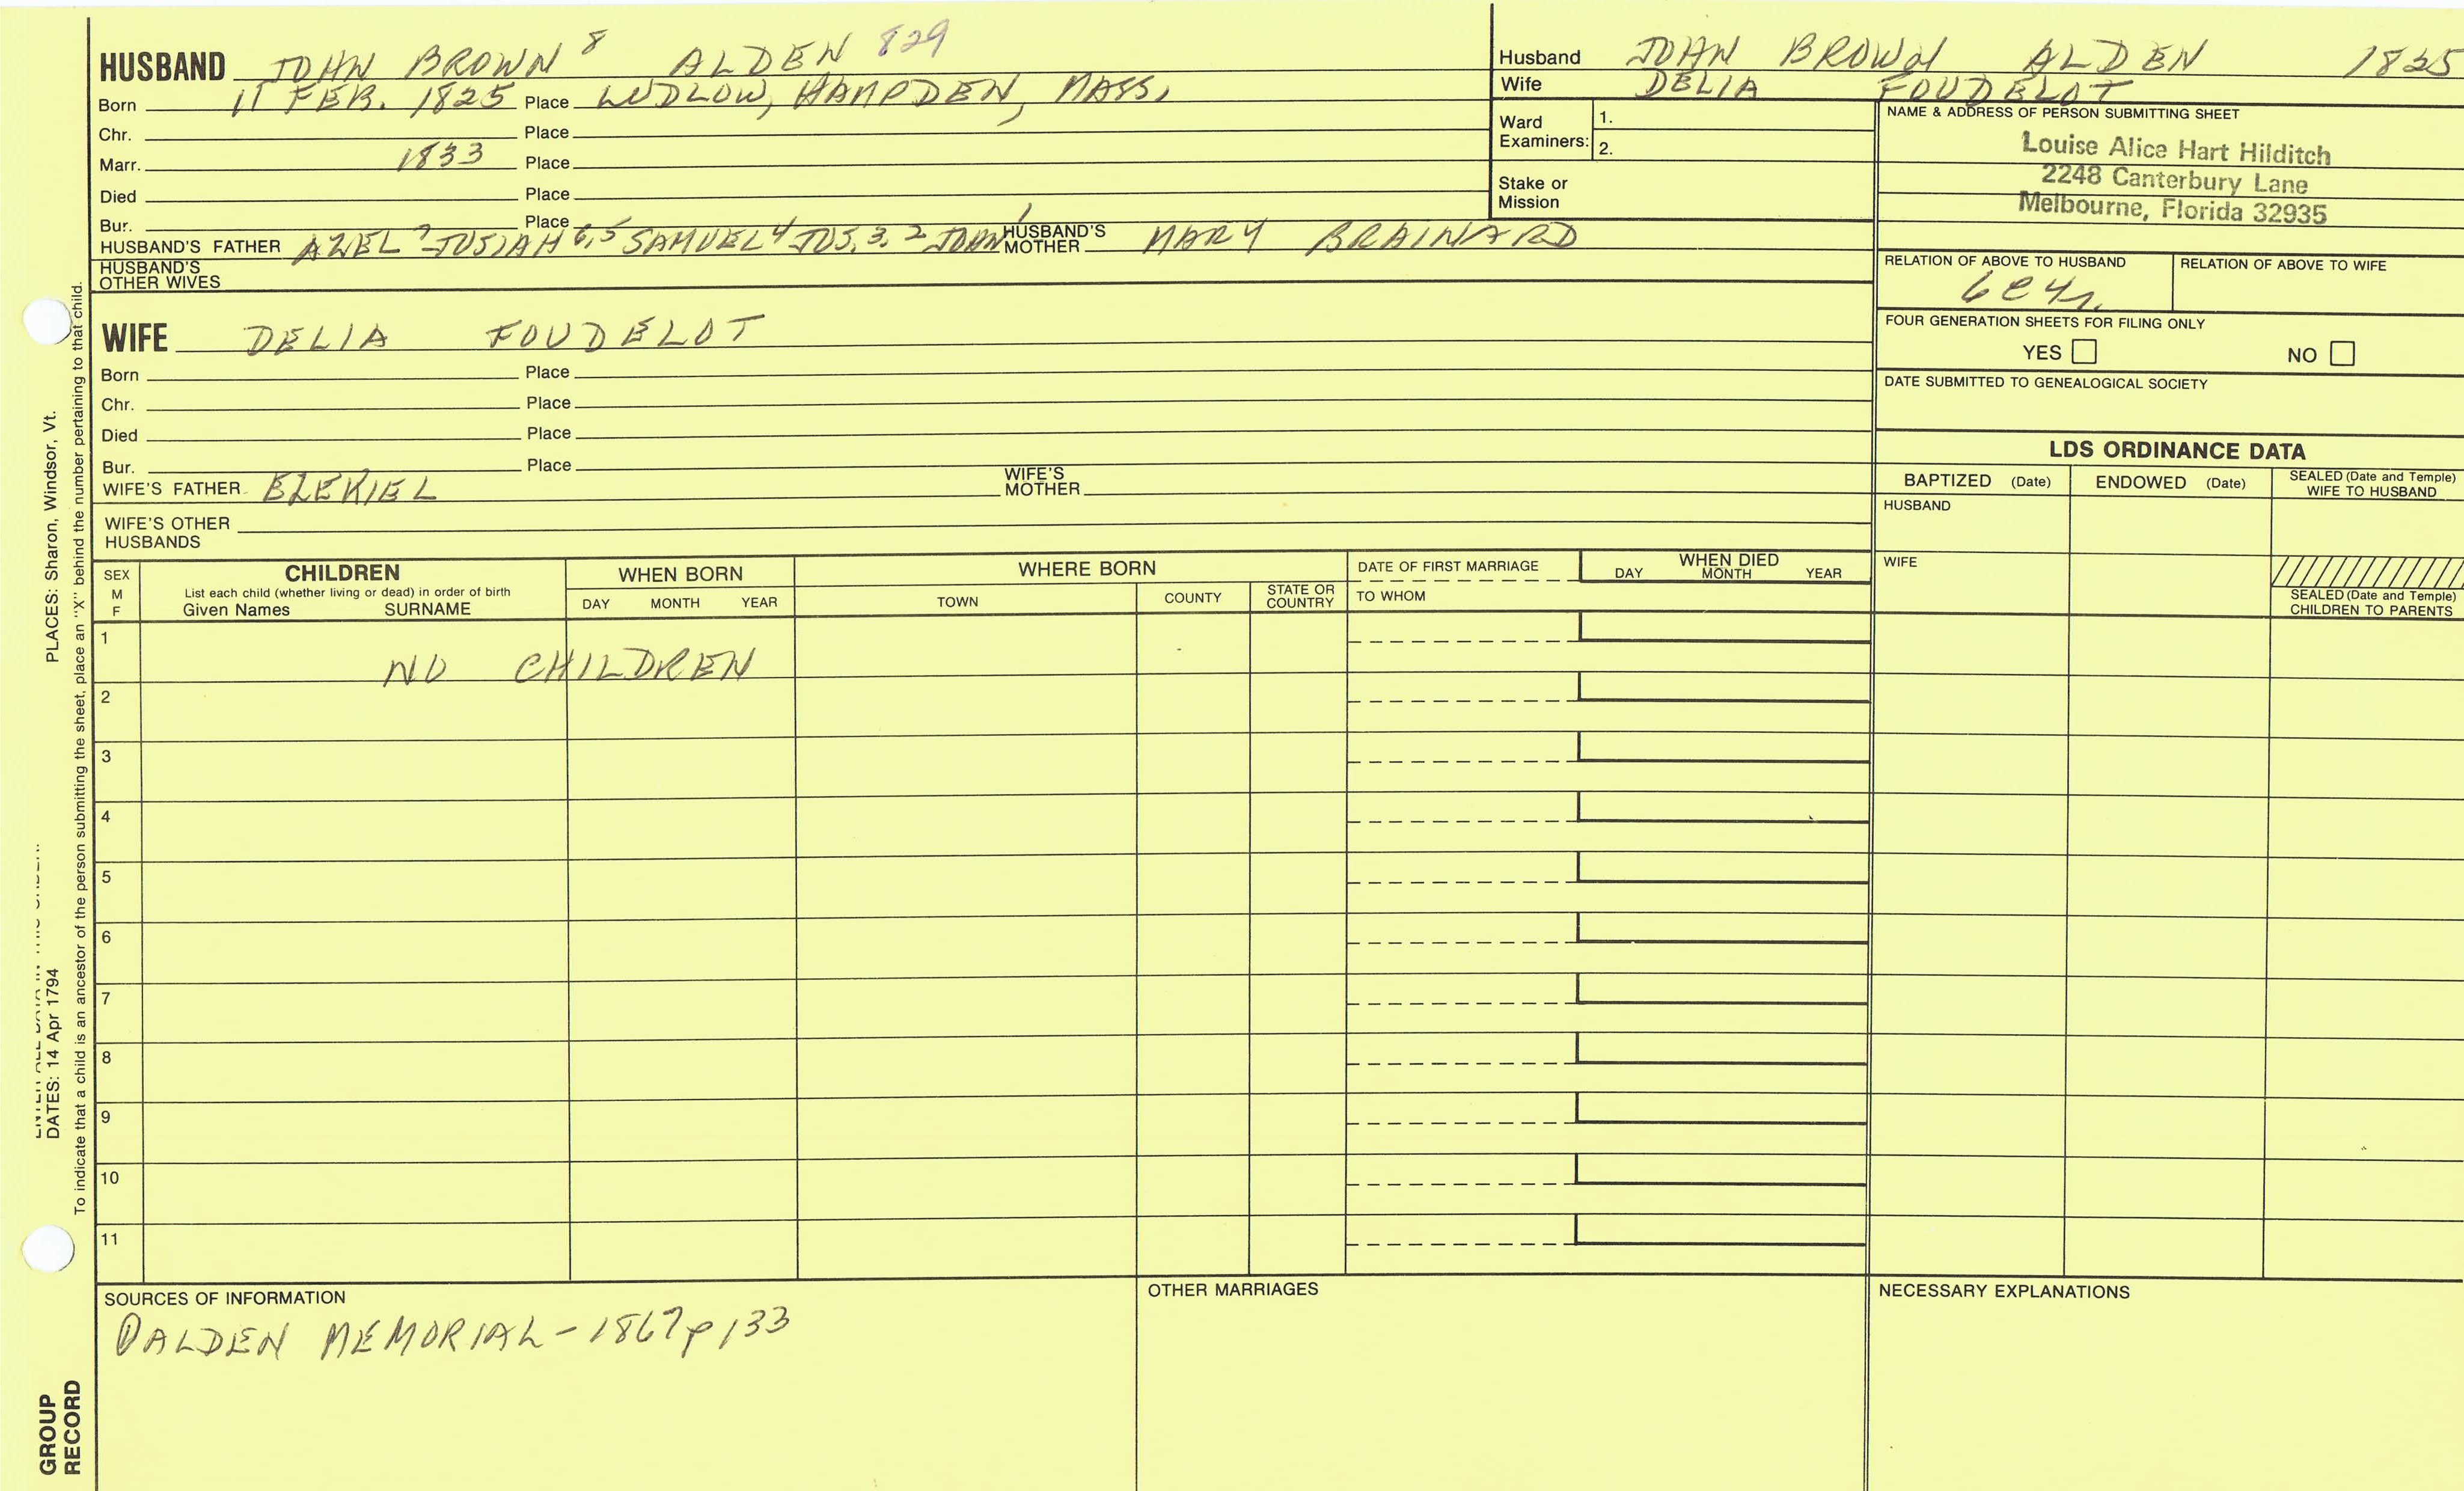 HUSBAND JOHN BROWN 8 ALDEN 829
Born 11 FEB. 1825 Place LUDLOW, HAMPDEN, MASS.
Chr. Place
Marr. 1833 Place
Died Place
Bur. Place
HUSBAND'S FATHER AZEL 7 JOSIAH 6,5 SAMUEL 4 JOS. 3, 2 JOHN 1 HUSBAND'S MOTHER MARY BRAINARD
HUSBAND'S OTHER WIVES
WIFE DELIA FOUDELOT
Born Place
Chr. Place
Died Place
Bur. Place
WIFE'S FATHER EZEKIEL WIFE'S MOTHER
WIFE'S OTHER HUSBANDS
Husband JOHN BROWN ALDEN 1825
Wife DELIA FOUDELOT
Ward Examiners: 1.
2.
Stake or Mission
NAME & ADDRESS OF PERSON SUBMITTING SHEET
Louise Alice Hart Hilditch
2248 Canterbury Lane
Melbourne, Florida 32935
RELATION OF ABOVE TO HUSBAND RELATION OF ABOVE TO WIFE
6C4r.
FOUR GENERATION SHEETS FOR FILING ONLY
YES NO
DATE SUBMITTED TO GENEALOGICAL SOCIETY
LDS ORDINANCE DATA
BAPTIZED (Date) ENDOWED (Date) SEALED (Date and Temple) WIFE TO HUSBAND
HUSBAND
WIFE
SEALED (Date and Temple) CHILDREN TO PARENTS
SEX M F
CHILDREN
List each child (whether living or dead) in order of birth
Given Names SURNAME
WHEN BORN
DAY MONTH YEAR
WHERE BORN
TOWN COUNTY STATE OR COUNTRY
DATE OF FIRST MARRIAGE
TO WHOM
WHEN DIED
DAY MONTH YEAR
1
NO CHILDREN
2
3
4
5
6
7
8
9
10
11
SOURCES OF INFORMATION
① ALDEN MEMORIAL - 1867 p 133
OTHER MARRIAGES
NECESSARY EXPLANATIONS
DATES: 14 Apr 1794 PLACES: Sharon, Windsor, Vt.
To indicate that a child is an ancestor of the person submitting the sheet, place an "X" behind the number pertaining to that child.
GROUP
RECORD